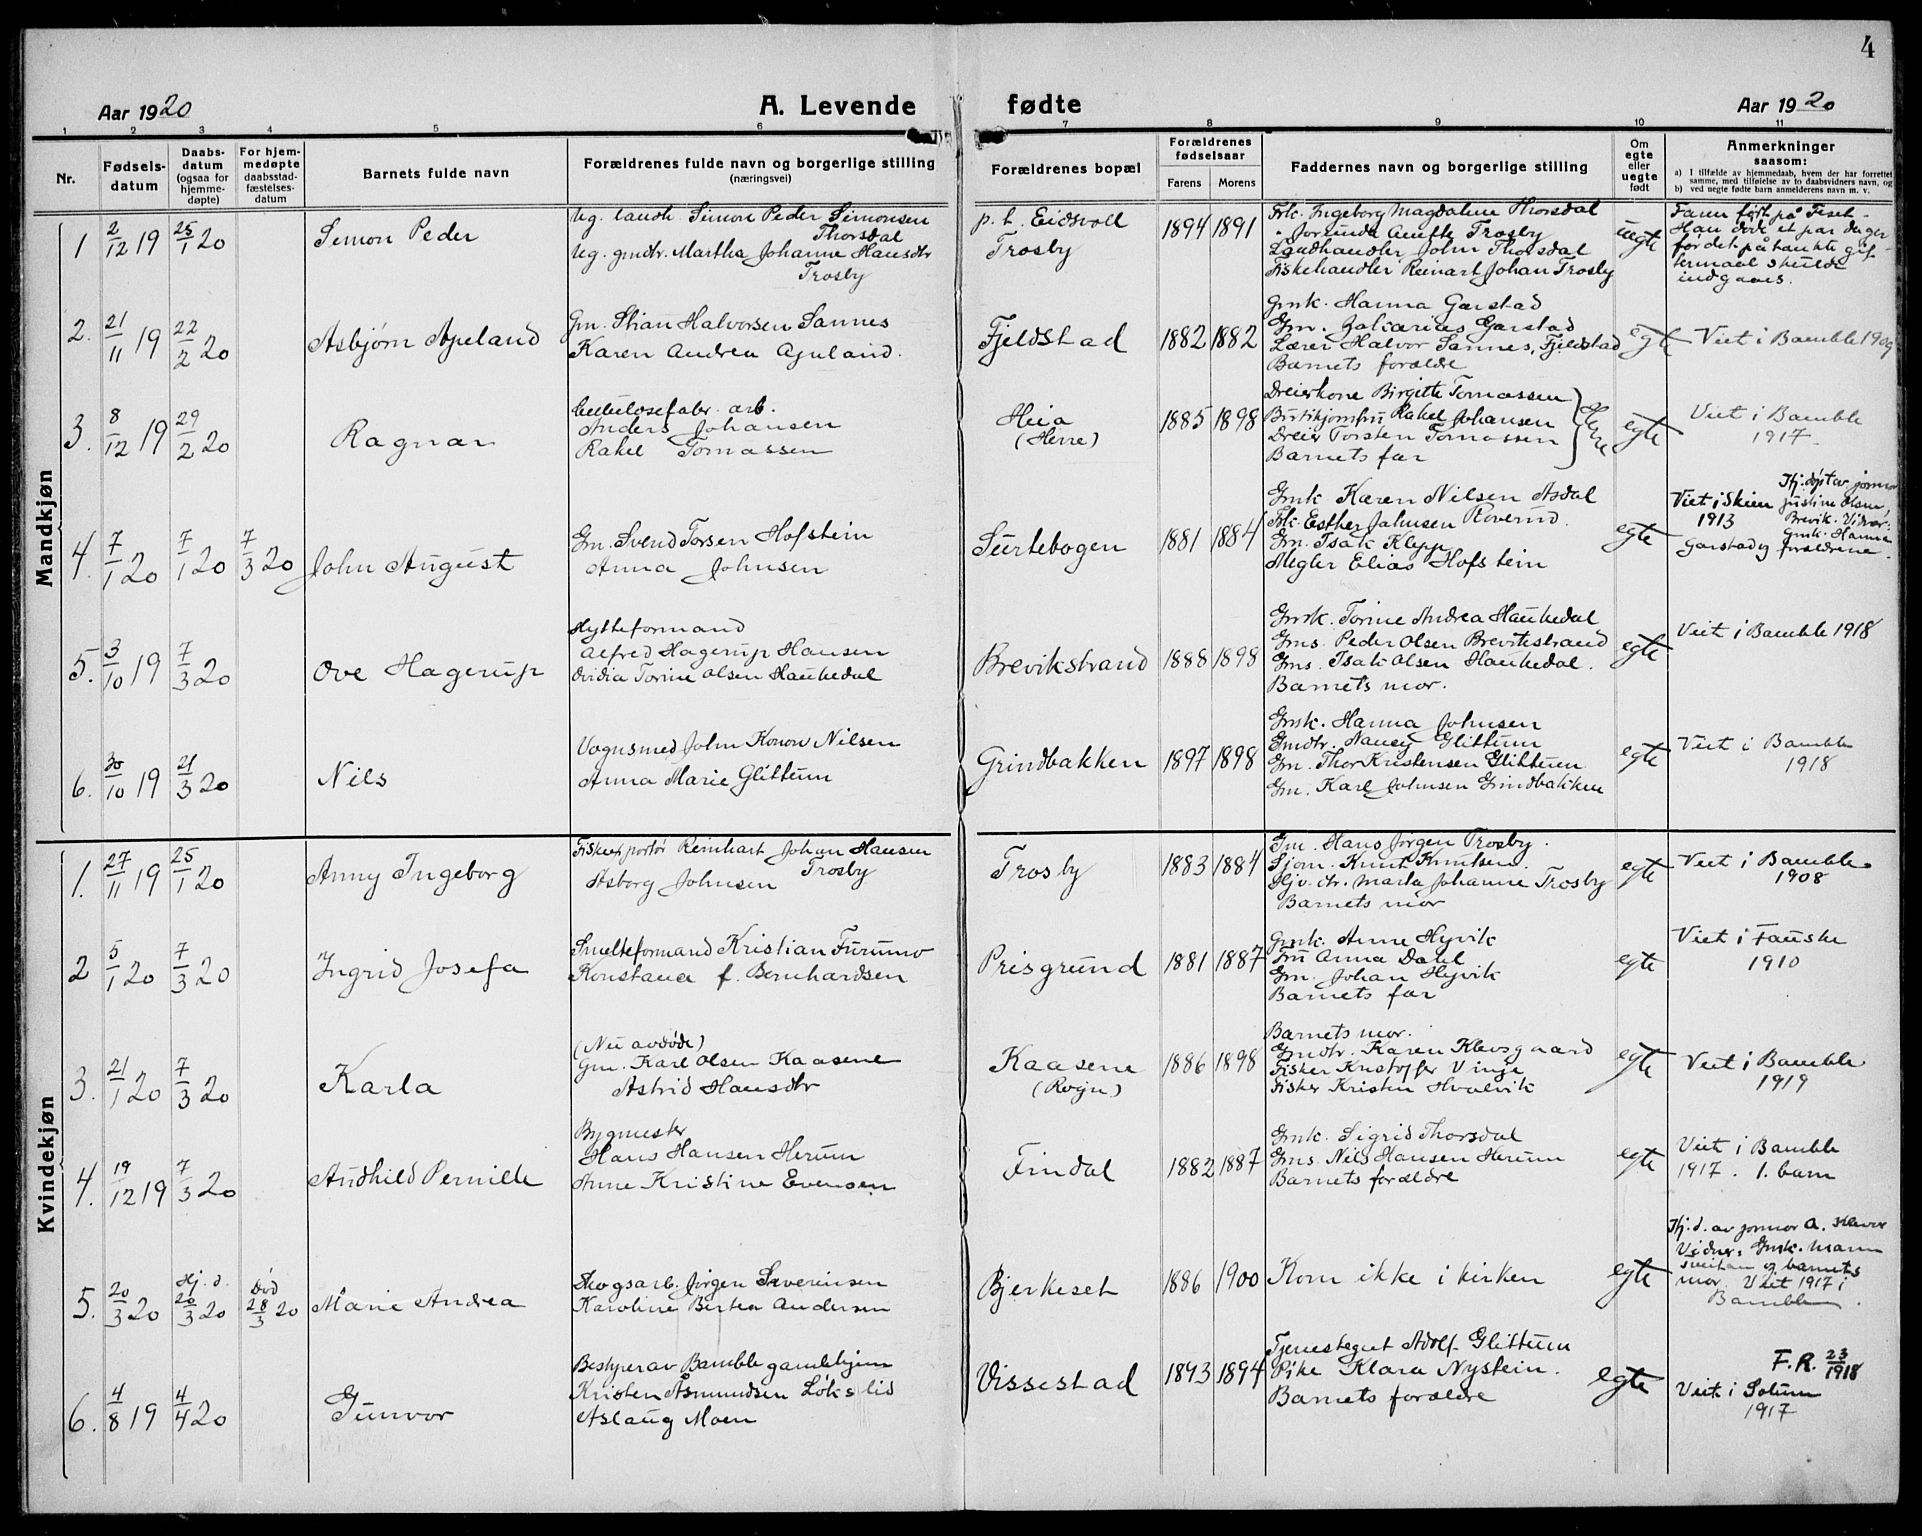 4
Aar 1920
A. Levende fødte
Aar 1920
1 2 3 4 5 6 7 8 9 10 11
Nr.
Fødselsdatum
Daabsdatum (ogsaa for hjemmedøpte)
For hjemmedøpte daabsstadfæstelsesdatum
Barnets fulde navn
Forældrenes fulde navn og borgerlige stilling
(næringsvei)
Forældrenes bopæl
Forældrenes fødselsaar
Farens Morens
Faddernes navn og borgerlige stilling
Om egte eller uegte født
Anmerkninger
saasom:
a) I tilfælde av hjemmedaab, hvem der har forrettet
samme, med tilføielse av to daabsvidners navn, og
b) ved uegte fødte barn anmelderens navn m. v.
Mandkjøn
1 2/12 19 25/1 20
Simon Peder
Ug. landh Simon Peder Simonsen
Thorsdal
Ug. gmdtr. Martha Johanne Hansdtr
Trosby
p. t. Eidsvoll
Trosby
1894 1891
Frk. Ingeborg Magdalene Thorsdal
" Jorunda Anette Trosby
Landhandler John Thorsdal
Fiskehandler Reinart Johan Trosby
uegte
Faren født på Feset
Han døde et par dager
før det påtænkte gif-
termaal skulde
indgaaes.
2. 21/11 19 22/2 20
Asbjørn Apeland
Gm. Stian Halvorsen Sannes
Karen Andrea Apeland.
Fjeldstad
1882 1882
Gmk. Hanna Garstad
Gm. Zakarias Garstad
Lærer Halvor Sannes, Fjeldstad
Barnets forældre
egte
Viet i Bamble 1909
3. 8/12 19 29/2 20
Ragnar
Cellulosefabr. arb.
Anders Johansen
Rakel Tomassen
Heia
(Herre)
1885 1898
Dreierkone Birgitte Tomassen
Butikjomfru Rakel Johansen
Dreier Torsten Tomassen
Barnets far
Herre
egte
Viet i Bamble
1917.
4. 7/1 20 7/1 20 7/3 20
John August
Gm. Svend Torsen Hofstein
Anna Johnsen
Surtebogen
1881 1884
Gmk Karen Nilsen Asdal
Frk. Esther Johnsen Roverud.
Gm. Isak Klepp
Megler Elias Hofstein
egte
Viet i Skien
1913
Hj. døpt av jormor
Justine Olsen,
Brevik. Vidner:
Gmk. Hanna
Garstad og forældrene.
5. 3/10 19 7/3 20
Ove Hagerup
Hytteformand
Alfred Hagerup Hansen
Ovidia Torine Olsen Haukedal
Brevikstrand
1888 1898
Gmsk. Torine Andrea Haukedal
Gms. Peder Olsen Brevikstrand
Gms. Isak Olsen Haukedal.
Barnets mor.
egte
Viet i Bamble 1918
6. 30/10 19 21/3 20
Nils
Vognsmed John Konow Nilsen
Anna Marie Glittum
Grindbakken
1897 1898
Gmsk. Hanna Johnsen
Gmdtr. Nancy Glittum
Gm. Thor Kristensen Glittum
Gm. Karl Johnsen Grindbakken
egte
Viet i Bamble
1918
Kvindekjøn
1. 27/11 19 25/1 20
Anny Ingeborg
Fiskeexportør Reinhart Johan Hansen
Trosby
Asborg Johnsen
Trosby
1883 1884
Gm. Hans Jørgen Trosby.
Sjøm. Knut Knutsen.
Hjv. dtr. Marta Johanne Trosby
Barnets mor
egte
Viet i Bamble
1908
2 5/1 20 7/3 20
Ingrid Josefa
Smelteformand Kristian Furumo
Konstance f. Bernhardsen
Prisgrund
1881 1887
Gmk. Anne Hyvik
Fru Anna Dahl
Gm. Johan Hyvik
Barnets far
egte
Viet i Fauske
1910
3. 21/1 20 7/3 20
Karla
(Nu avdøde)
Gm. Karl Olsen Kaasene
Astrid Hansdtr
Kaasene
(Rogn)
1886 1898
Barnets mor.
Gmdtr. Karen Klevsgaard
Fisker Kristoffer Vinje
Fisker Kristen Hvalvik
egte
Viet i Bamble
1919
4. 19/12 19 7/3 20
Audhild Pernille
Bygmester
Hans Hansen Herum
Anne Kristine Evensen
Findal
1882 1887
Gmk. Sigrid Thorsdal
Gms. Nils Hansen Herum
Barnets forældre
egte
Viet i Bamble
1917. 1. barn
5. 20/3 20 Hj. d. 20/3 20 Død 28/3 20
Marie Andrea
Skogsarb. Jørgen Severinsen
Karoline Bertea Andersen
Bjerkeset
1886 1900
Kom ikke i kirken
egte
Hj. d. av jormor A.
Vidner: Gmk.
og barnets
mor. Viet 1917 i
Bamble.
6. 4/8 19 4/4 20
Gunvor
Bestyrer av Bamble gamlehjem
Kristen Åsmundsen Løkslid
Aslaug Moen
Vissestad
1893 1894
Tjenestegut Adolf Glittum
Pike Klara Nystein.
Barnets forældre
egte
F. R. 23/1918
Viet i Solum
1917